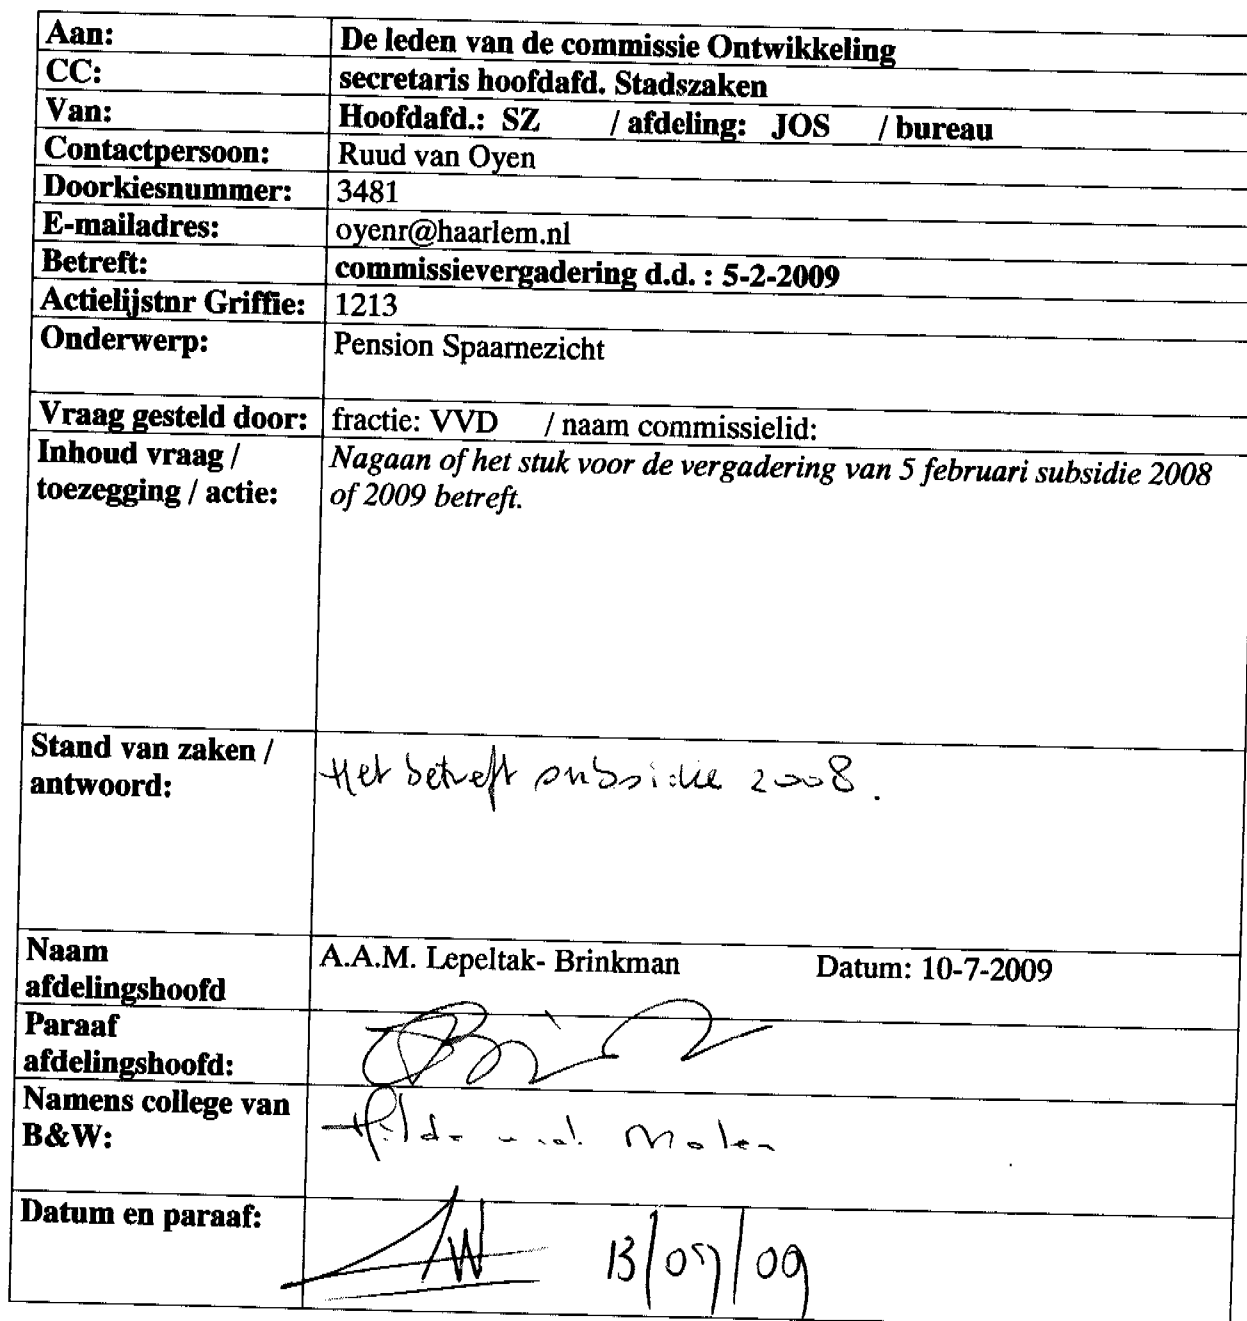 Aan: De leden van de commissie Ontwikkeling
CC: secretaris hoofdafd. Stadszaken
Van: Hoofdafd.: SZ / afdeling: JOS / bureau
Contactpersoon: Ruud van Oyen
Doorkiesnummer: 3481
E-mailadres: oyenr@haarlem.nl
Betreft: commissievergadering d.d. : 5-2-2009
Actielijstnr Griffie: 1213
Onderwerp: Pension Spaarnezicht
Vraag gesteld door: fractie: VVD / naam commissielid:
Inhoud vraag / Nagaan of het stuk voor de vergadering van 5 februari subsidie 2008
toezegging / actie: of 2009 betreft.
Stand van zaken / Het betreft subsidie 2008.
antwoord:
Naam A.A.M. Lepeltak- Brinkman Datum: 10-7-2009
afdelingshoofd
Paraaf
afdelingshoofd:
Namens college van Hilde v.d. Molen
B&W:
Datum en paraaf: 13/07/09